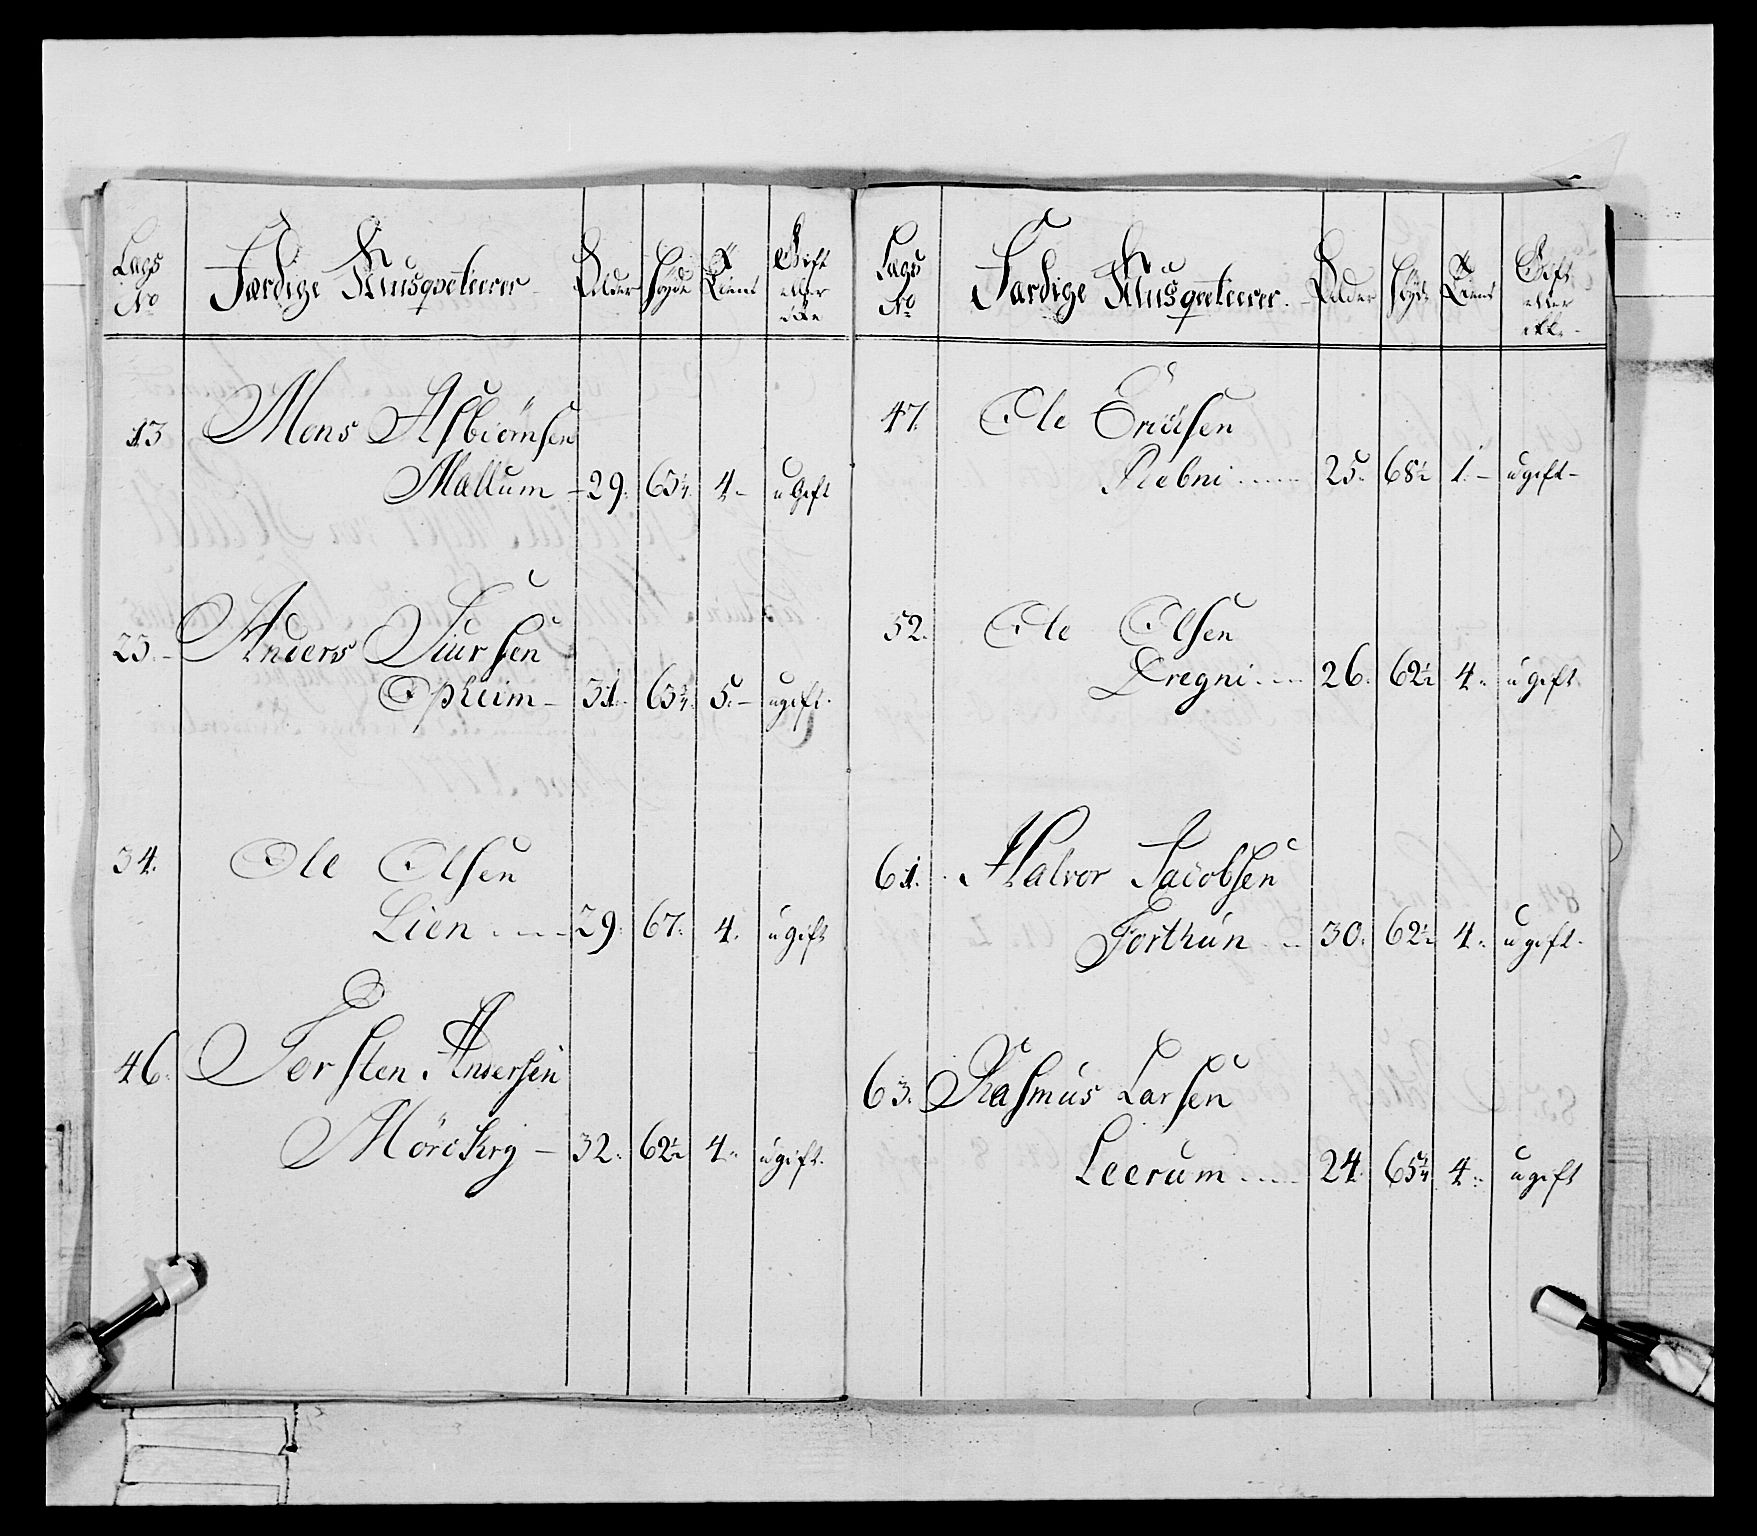 Lags No Færdige Musqveteerer Alder Høyde Tient Gift eller ikke
13 Mons Asbiömsen
Mallum - 29. 63¼. 4 - ugift
23. - Anders Siursen
Opheim - 31. 63¼. 5. - ugift.
34. Ole Olsen
Lien 29. 67. 4. ugift
46. Torsten Andersen
Mörckry - 32. 62½ 4. ugift.
Lags No Færdige Musqveteerer. Alder Høyde Tient Gift eller ikke.
47. Ole Ericksen
Rebni 25. 68½ 1. - ugift -
52. Ole Olsen
Dregni 26. 62½ 4. ugift.
61. Halvor Jacobsen
Forthun 30. 62½ 4. ugift.
63. Rasmus Larsen
Leerum 24. 65¼ 4. ugift